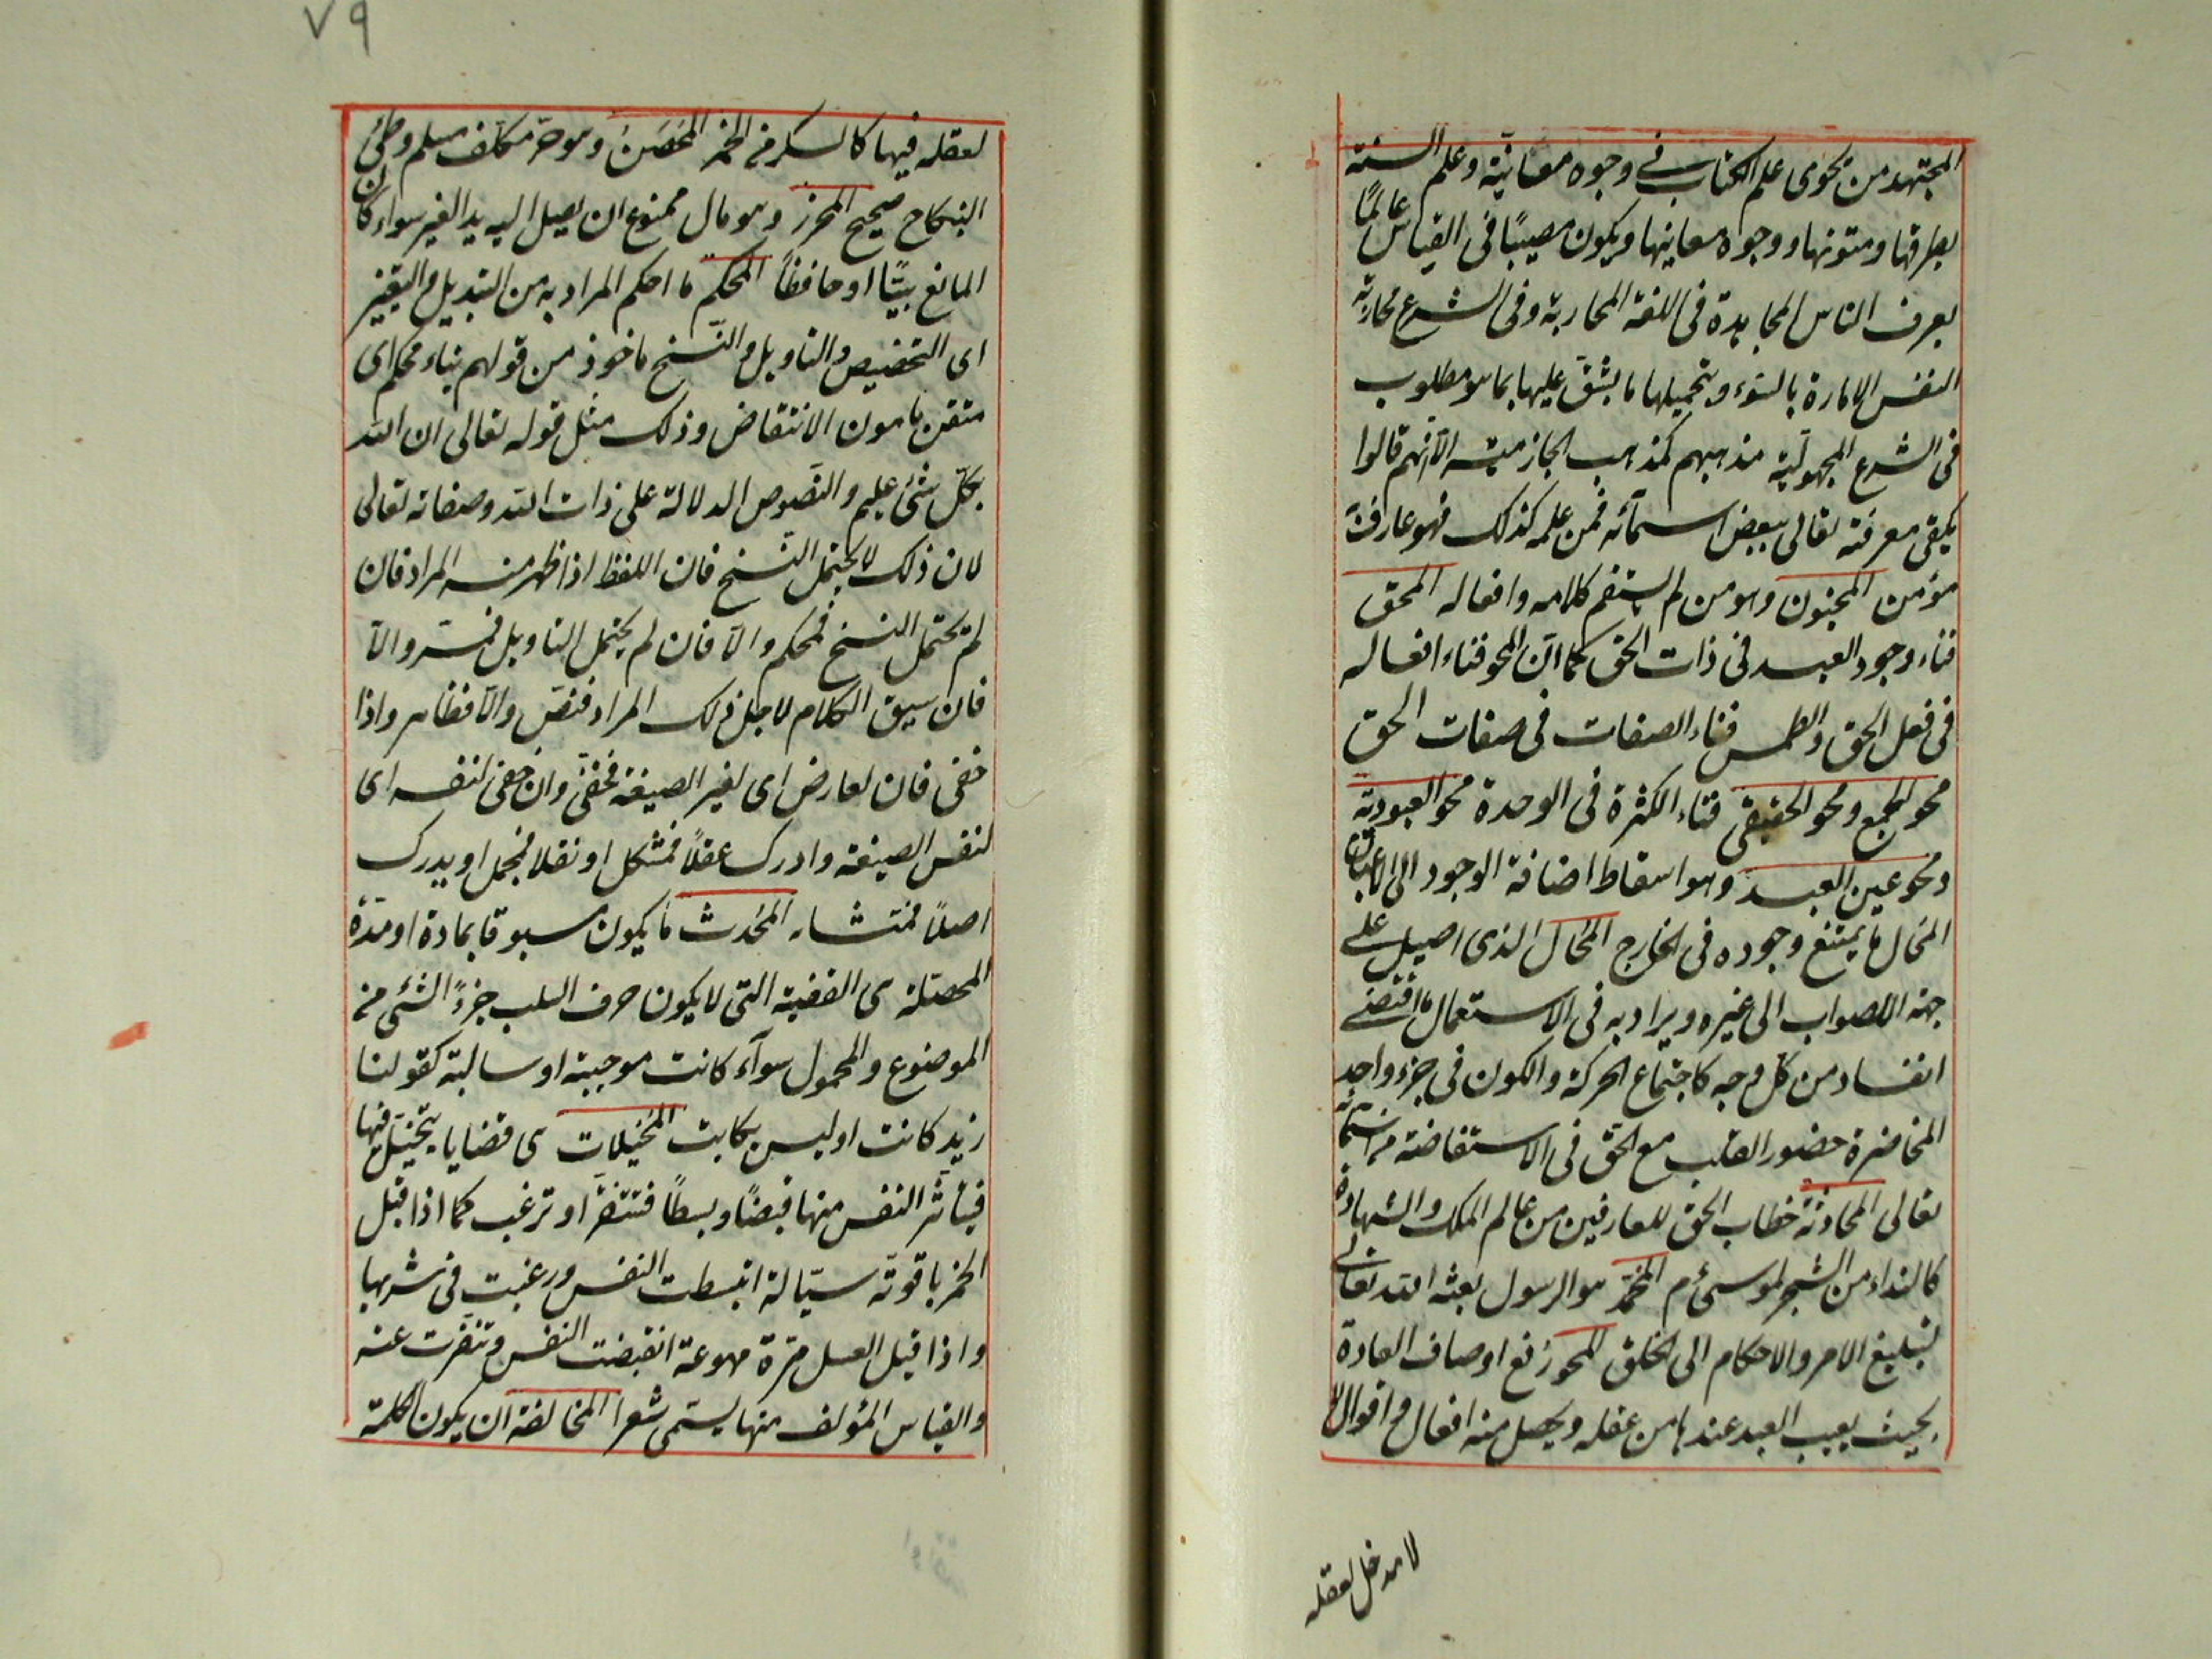 المجتهد من يحوى علم الكتاب فى وجوه معانيه وعلم السنة
بطرقها ومتونها ووجوه معانيها ويكون مصيبًا فى القياس عالمًا
بعرف الناس المجاهدة فى اللغة المحاربة وفى الشرع محاربة
النفس الامارة بالسوء وبتحميلها ما يشق عليها بما هو مطلوب
فى الشرع المجهولية مذهبهم كمذهب الجازمية الا انهم قالوا
يكفى معرفته تعالى ببعض اسمائه فمن علمه كذلك فهو عارف به
مؤمن المجنون وهو من لم يستقم كلامه وافعاله المحق
فناء وجود العبد فى ذات الحق كما ان المحو فناء افعاله
فى فعل الحق والطمس فناء الصفات فى صفات الحق
محو الجمع ومحو الحقيقى فناء الكثرة فى الوحدة محو العبودية
ومحو عين العبد وهو اسقاط اضافة الوجود الى الاعيان
المحال ما يمتنع وجوده فى الخارج المحال الذى احيل على
جهة الصواب الى غيره ويراد به فى الاستعمال ما اقتضى
الفساد من كل وجه كاجتماع الحركة والكون فى جزء واحد
المحاضرة حضور القلب مع الحق فى الاستفاضة من اسمائه
تعالى المحادثة خطاب الحق للعارفين من عالم الملك والشهادة
كالنداء من الشجر لموسى ءم المحمد هو الرسول بعثه الله تعالى
لتبليغ الامر والاحكام الى الخلق المحو رفع اوصاف العادة
بحيث يغيب العبد عندها من عقله ويحصل منه افعال واقوال
لا مدخل لعقله
٧٩
لعقله فيها كالسكر من الخمر المحصن وهو حر مكلف مسلم وطئ
النكاح صحيح المحرز وهو مال ممنوع ان يصل اليه يد الغير سواء كان
المانع بيتًا او حافظًا المحكم ما احكم المراد به من التبديل والتغيير
اى التخصيص والتاويل والنسخ ماخوذ من قولهم بناء محكم اى
متقن مامون الانتقاض وذلك مثل قوله تعالى ان الله
بكل شئ عليم والنصوص الدلالة على ذات الله وصفاته تعالى
لان ذلك لا يحتمل النسخ فان اللفظ اذا ظهر منه المراد فان
لم يحتمل النسخ فمحكم والا فان لم يحتمل التاويل فمفسر والا
فان سيق الكلام لاجل ذلك المراد فنص والا فظاهر واذا
خفى فان لعارض اى لغير الصيغة فخفى وان خفى لنفسه اى
لنفس الصيغة وادرك عقلًا فمشكل او نقلا فمجمل او يدرك
اصلًا فمتشابه المحدث ما يكون مسبوقا بمادة او مدة
المحصلة هى القضية التى لا يكون حرف السلب جزءً الشئ من
الموضوع والمحمول سواء كانت موجبة او سالبة كقولنا
زيد كاتب او ليس بكاتب المخيلات هى قضايا يتخيل فيها
فيتأثر النفس منها قبضًا وبسطًا فتتنفر او ترغب كما اذا قيل
الخمر ياقوتة سيالة انبسطت النفس ورغبت فى شربها
واذا قيل العسل مرة مهوعة انقبضت النفس وتنفرت عنه
والقياس المؤلف منها يسمى شعرا المخالفة ان يكون الكلمة